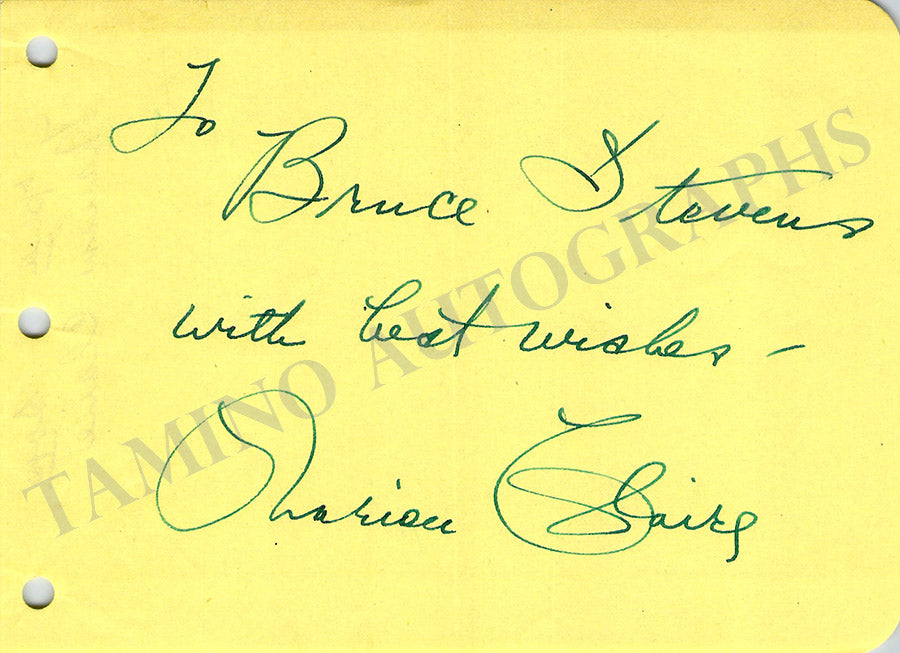 To
Bruce Stevens
with best wishes -
Marion Claire
TAMINO AUTOGRAPHS